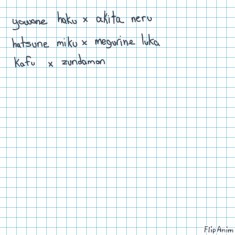 yowane haku x akita neru
hatsune miku x megurine luka
kafu x zundamon
FlipAnim